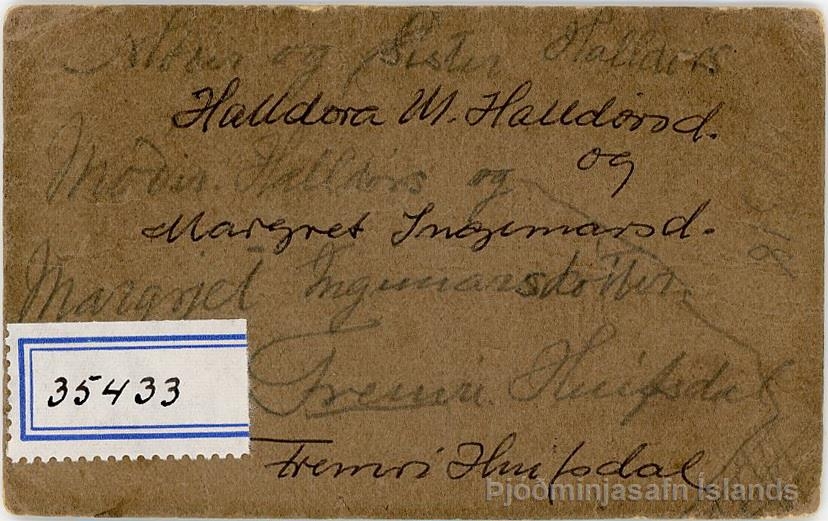 Móðir og Sister Halldórs
Halldora M. Halldórsd.
og
Móðir Halldórs og
Margret Ingemarsd.
Margrjet Ingimarsdotter.
35433
Fremri Hnifsdal
Fremri Hnifsdal
Þjóðminjasafn Íslands